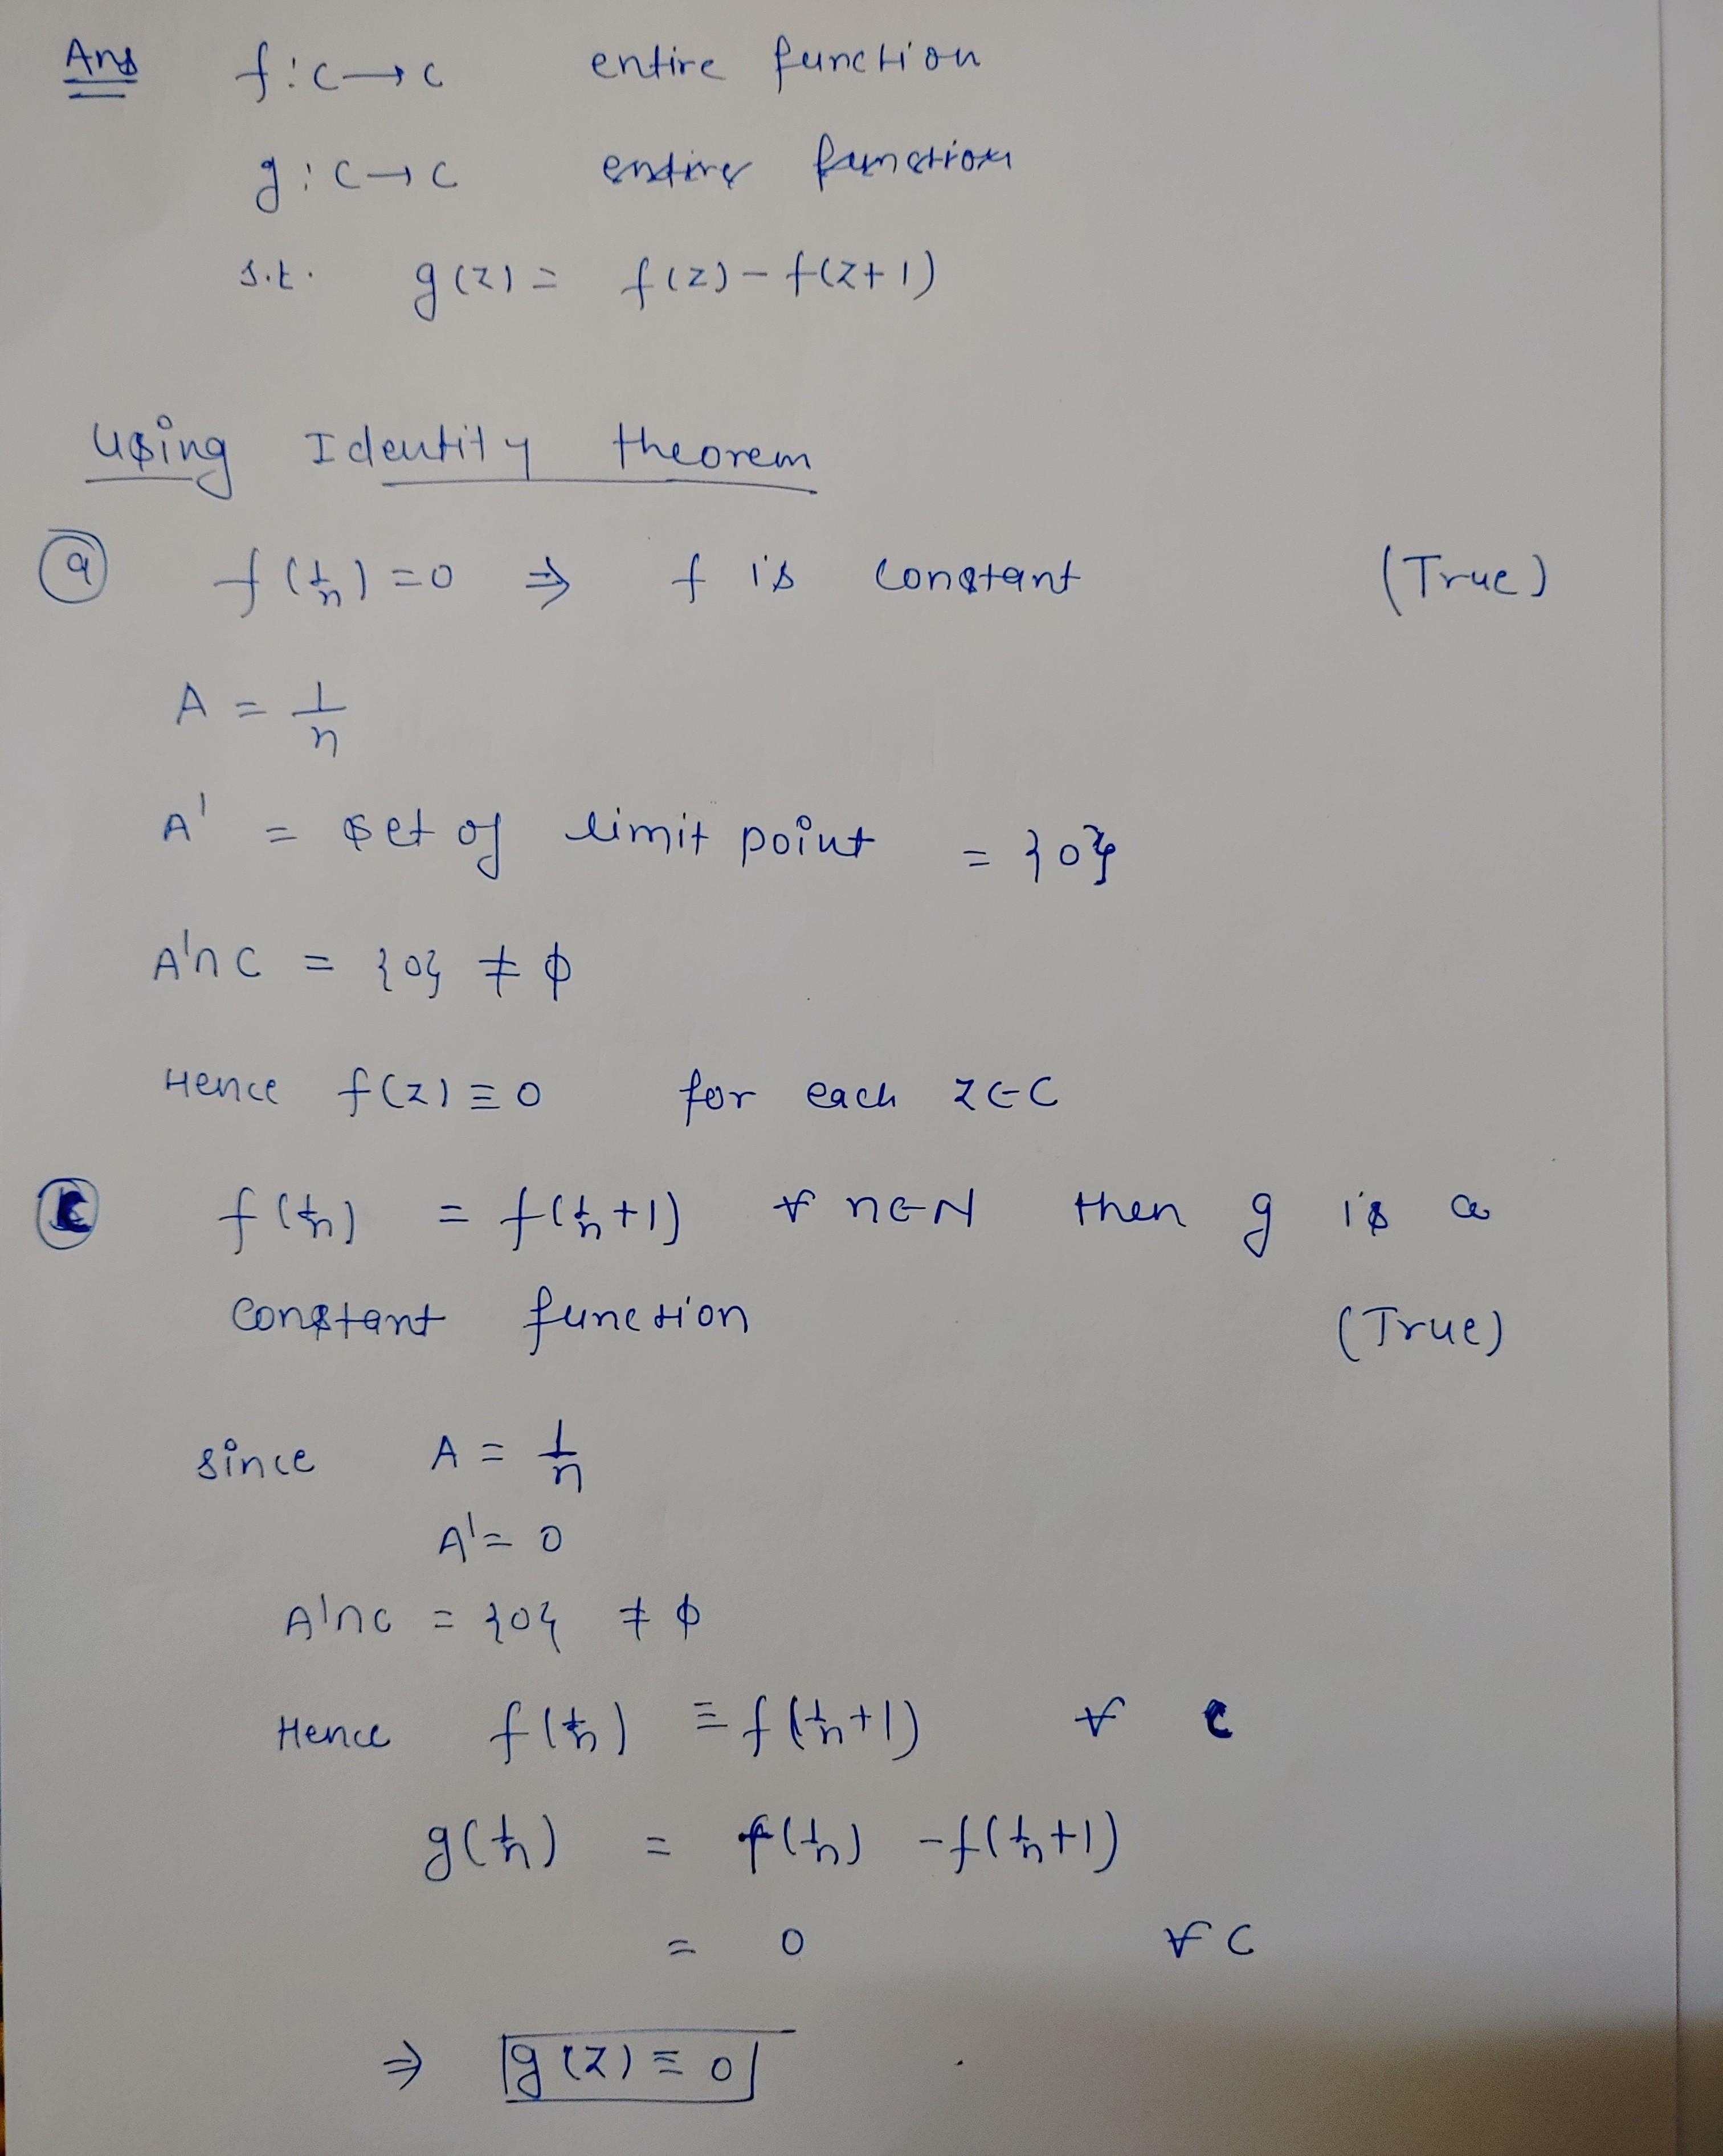 Ans f : C → C entire function
g : C → C entire function
s.t. g(z) = f(z) - f(z+1)
Using Identity theorem
(a) f(1/n) = 0 ⇒ f is constant (True)
A = 1/n
A' = set of limit point = {0}
A'∩C = {0} ≠ ϕ
Hence f(z) ≡ 0 for each z ∈ C
(c) f(1/n) = f(1/n + 1) ∀ n ∈ N then g is a
constant function (True)
since A = 1/n
A' = 0
A'∩C = {0} ≠ ϕ
Hence f(1/n) ≡ f(1/n + 1) ∀ C
g(1/n) = f(1/n) - f(1/n + 1)
= 0 ∀ C
⇒ g(z) ≡ 0